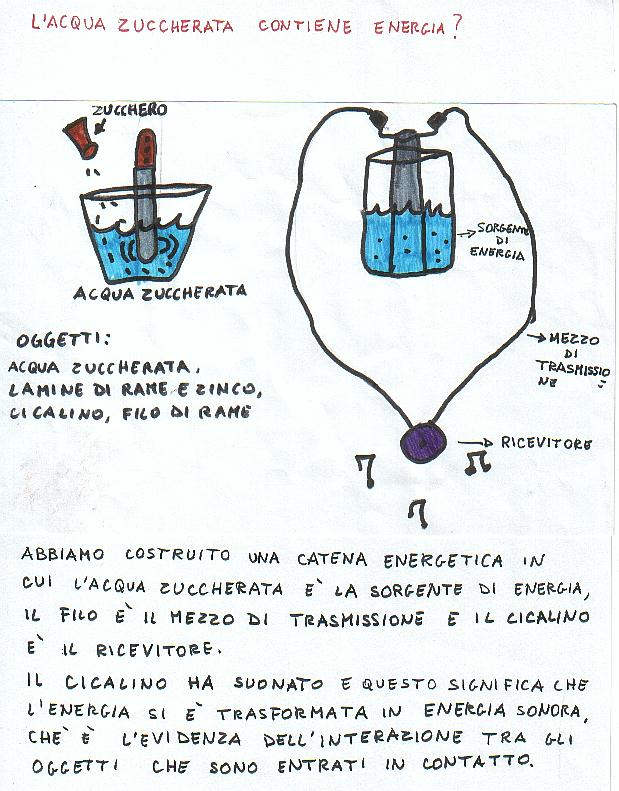 L'ACQUA ZUCCHERATA CONTIENE ENERGIA?
ZUCCHERO
ACQUA ZUCCHERATA
SORGENTE
DI
ENERGIA
OGGETTI:
ACQUA ZUCCHERATA,
LAMINE DI RAME E ZINCO,
CICALINO, FILO DI RAME
MEZZO
DI
TRASMISSIO
NE =
RICEVITORE
ABBIAMO COSTRUITO UNA CATENA ENERGETICA IN
CUI L'ACQUA ZUCCHERATA È LA SORGENTE DI ENERGIA,
IL FILO È IL MEZZO DI TRASMISSIONE E IL CICALINO
È IL RICEVITORE.
IL CICALINO HA SUONATO E QUESTO SIGNIFICA CHE
L'ENERGIA SI È TRASFORMATA IN ENERGIA SONORA,
CHE È L'EVIDENZA DELL'INTERAZIONE TRA GLI
OGGETTI CHE SONO ENTRATI IN CONTATTO.